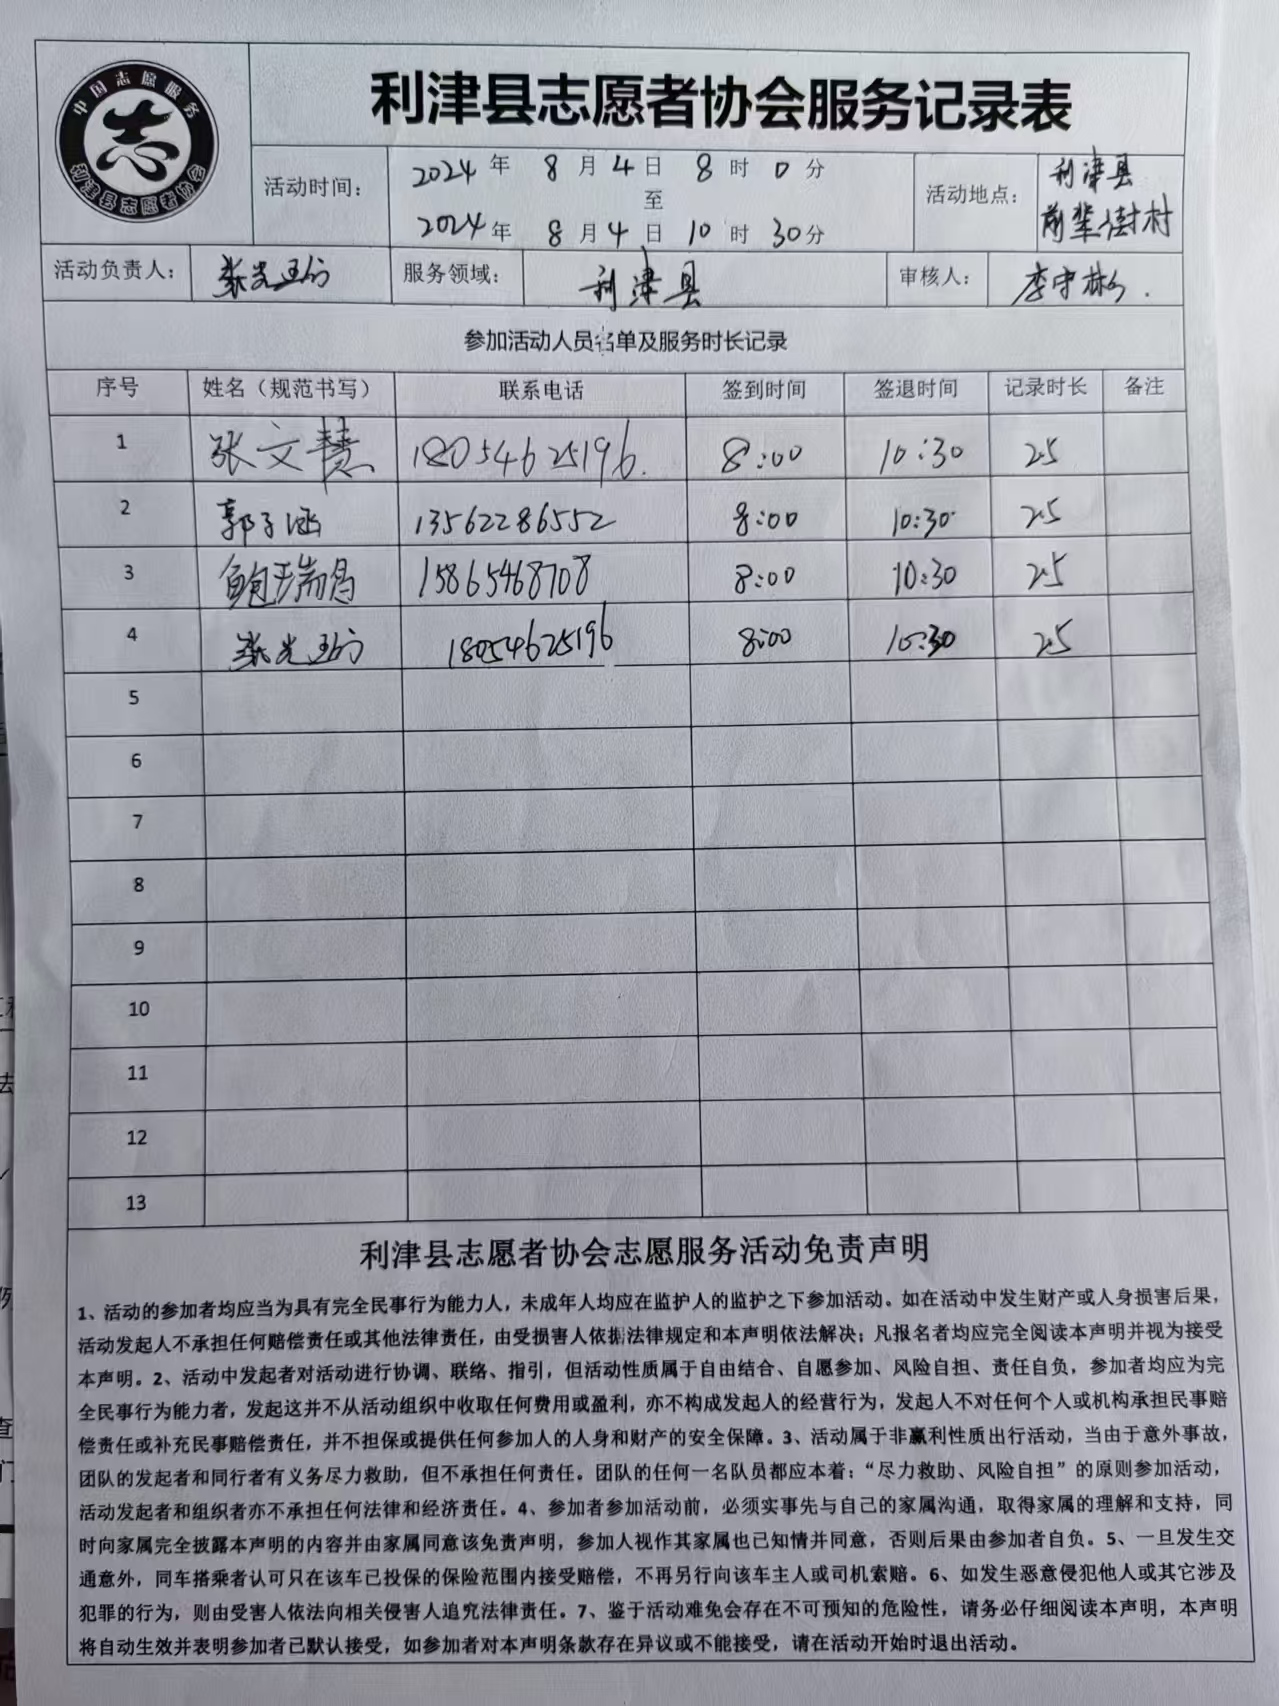 中国志愿服务
志
利津县志愿者协会
利津县志愿者协会服务记录表
活动时间：
2024年 8月4日 8时 0分
至
2024年 8月4日 10时 30分
活动地点：
利津县
前辈街村
活动负责人：
服务领域：
利津县
审核人：
李守彬
参加活动人员名单及服务时长记录
序号 姓名（规范书写） 联系电话 签到时间 签退时间 记录时长 备注
1 张文慧 18054625196. 8:00 10:30 2.5
2 郭子涵 13562286552 8:00 10:30 2.5
3 鲍瑞昌 15865468708 8:00 10:30 2.5
4 18054625196 8:00 10:30 2.5
5
6
7
8
9
10
11
12
13
利津县志愿者协会志愿服务活动免责声明
1、活动的参加者均应当为具有完全民事行为能力人，未成年人均应在监护人的监护之下参加活动。如在活动中发生财产或人身损害后果，
活动发起人不承担任何赔偿责任或其他法律责任，由受损害人依据法律规定和本声明依法解决；凡报名者均应完全阅读本声明并视为接受
本声明。2、活动中发起者对活动进行协调、联络、指引，但活动性质属于自由结合、自愿参加、风险自担、责任自负，参加者均应为完
全民事行为能力者，发起这并不从活动组织中收取任何费用或盈利，亦不构成发起人的经营行为，发起人不对任何个人或机构承担民事赔
偿责任或补充民事赔偿责任，并不担保或提供任何参加人的人身和财产的安全保障。3、活动属于非赢利性质出行活动，当由于意外事故，
团队的发起者和同行者有义务尽力救助，但不承担任何责任。团队的任何一名队员都应本着：“尽力救助、风险自担”的原则参加活动，
活动发起者和组织者亦不承担任何法律和经济责任。4、参加者参加活动前，必须实事先与自己的家属沟通，取得家属的理解和支持，同
时向家属完全披露本声明的内容并由家属同意该免责声明，参加人视作其家属也已知情并同意，否则后果由参加者自负。5、一旦发生交
通意外，同车搭乘者认可只在该车已投保的保险范围内接受赔偿，不再另行向该车主人或司机索赔。6、如发生恶意侵犯他人或其它涉及
犯罪的行为，则由受害人依法向相关侵害人追究法律责任。7、鉴于活动难免会存在不可预知的危险性，请务必仔细阅读本声明，本声明
将自动生效并表明参加者已默认接受，如参加者对本声明条款存在异议或不能接受，请在活动开始时退出活动。